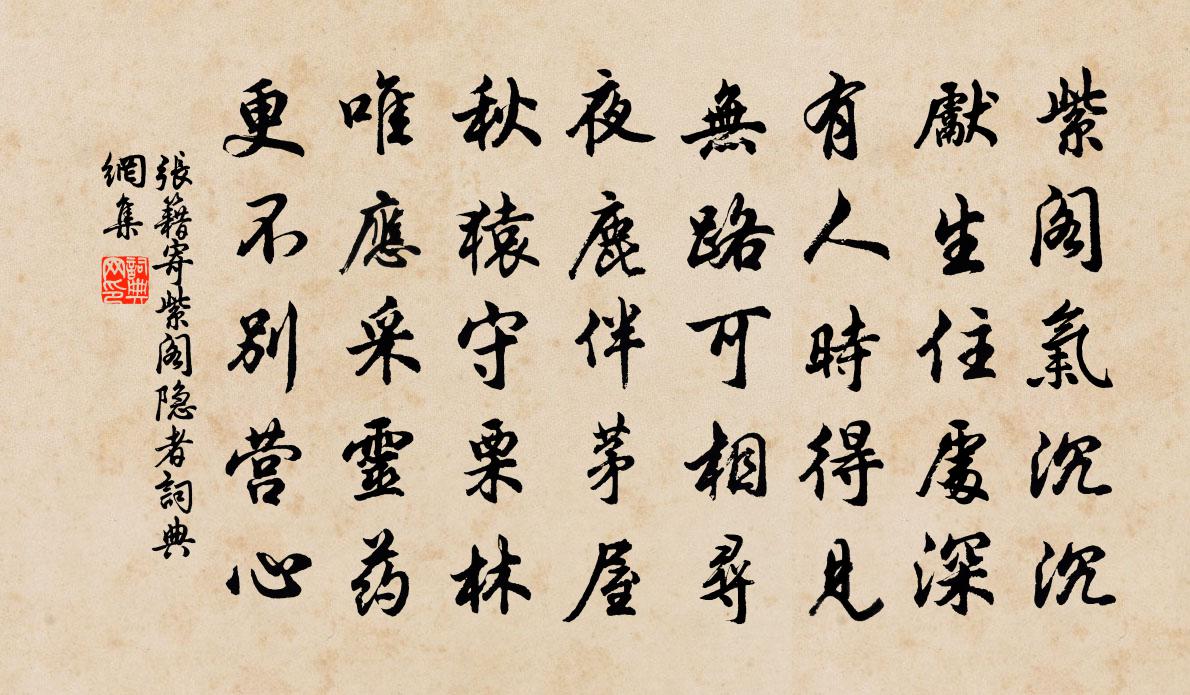 紫阁氣沉沉
獻生住處深
有人時得見
無路可相尋
夜鹿伴茅屋
秋猿守栗林
唯應采靈药
更不别营心
張籍寄紫阁隐者詞典
網集
詞典网印